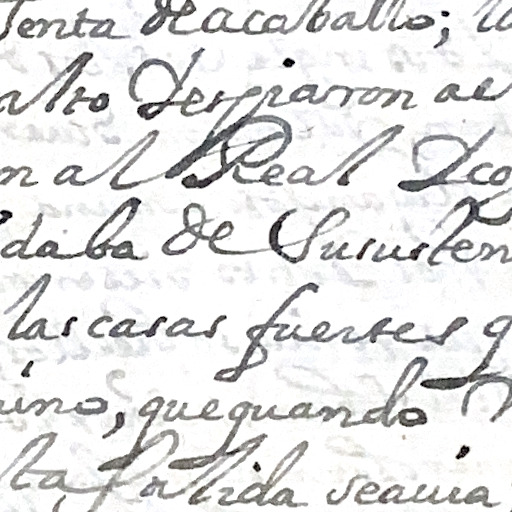 Tenta de acaballo; la
alto Despiaron al
n al Real D co
daba de Su susten
las casas fuertes q
ino, que quando
ta salida seauia